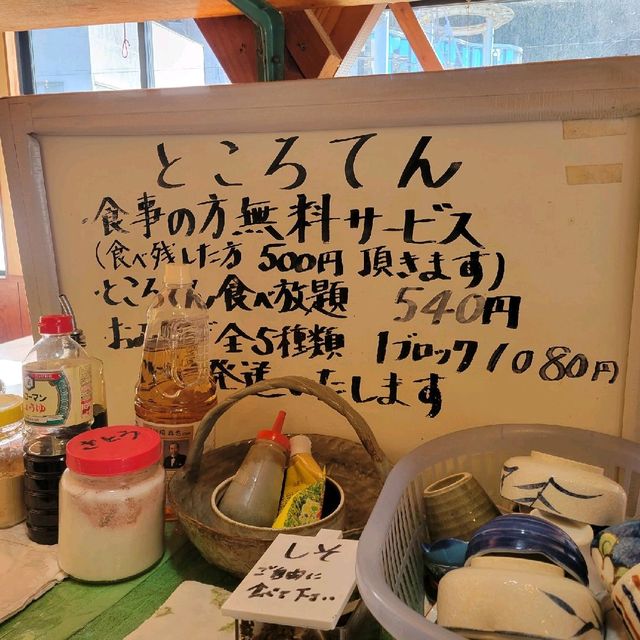 ところてん
食事の方無料サービス
(食べ残した方 500円 頂きます)
ところてん食べ放題 540円
お 全5種類 1ブロック1080円
発送いたします
さとう
しそ
ご自由に
食べて下さい